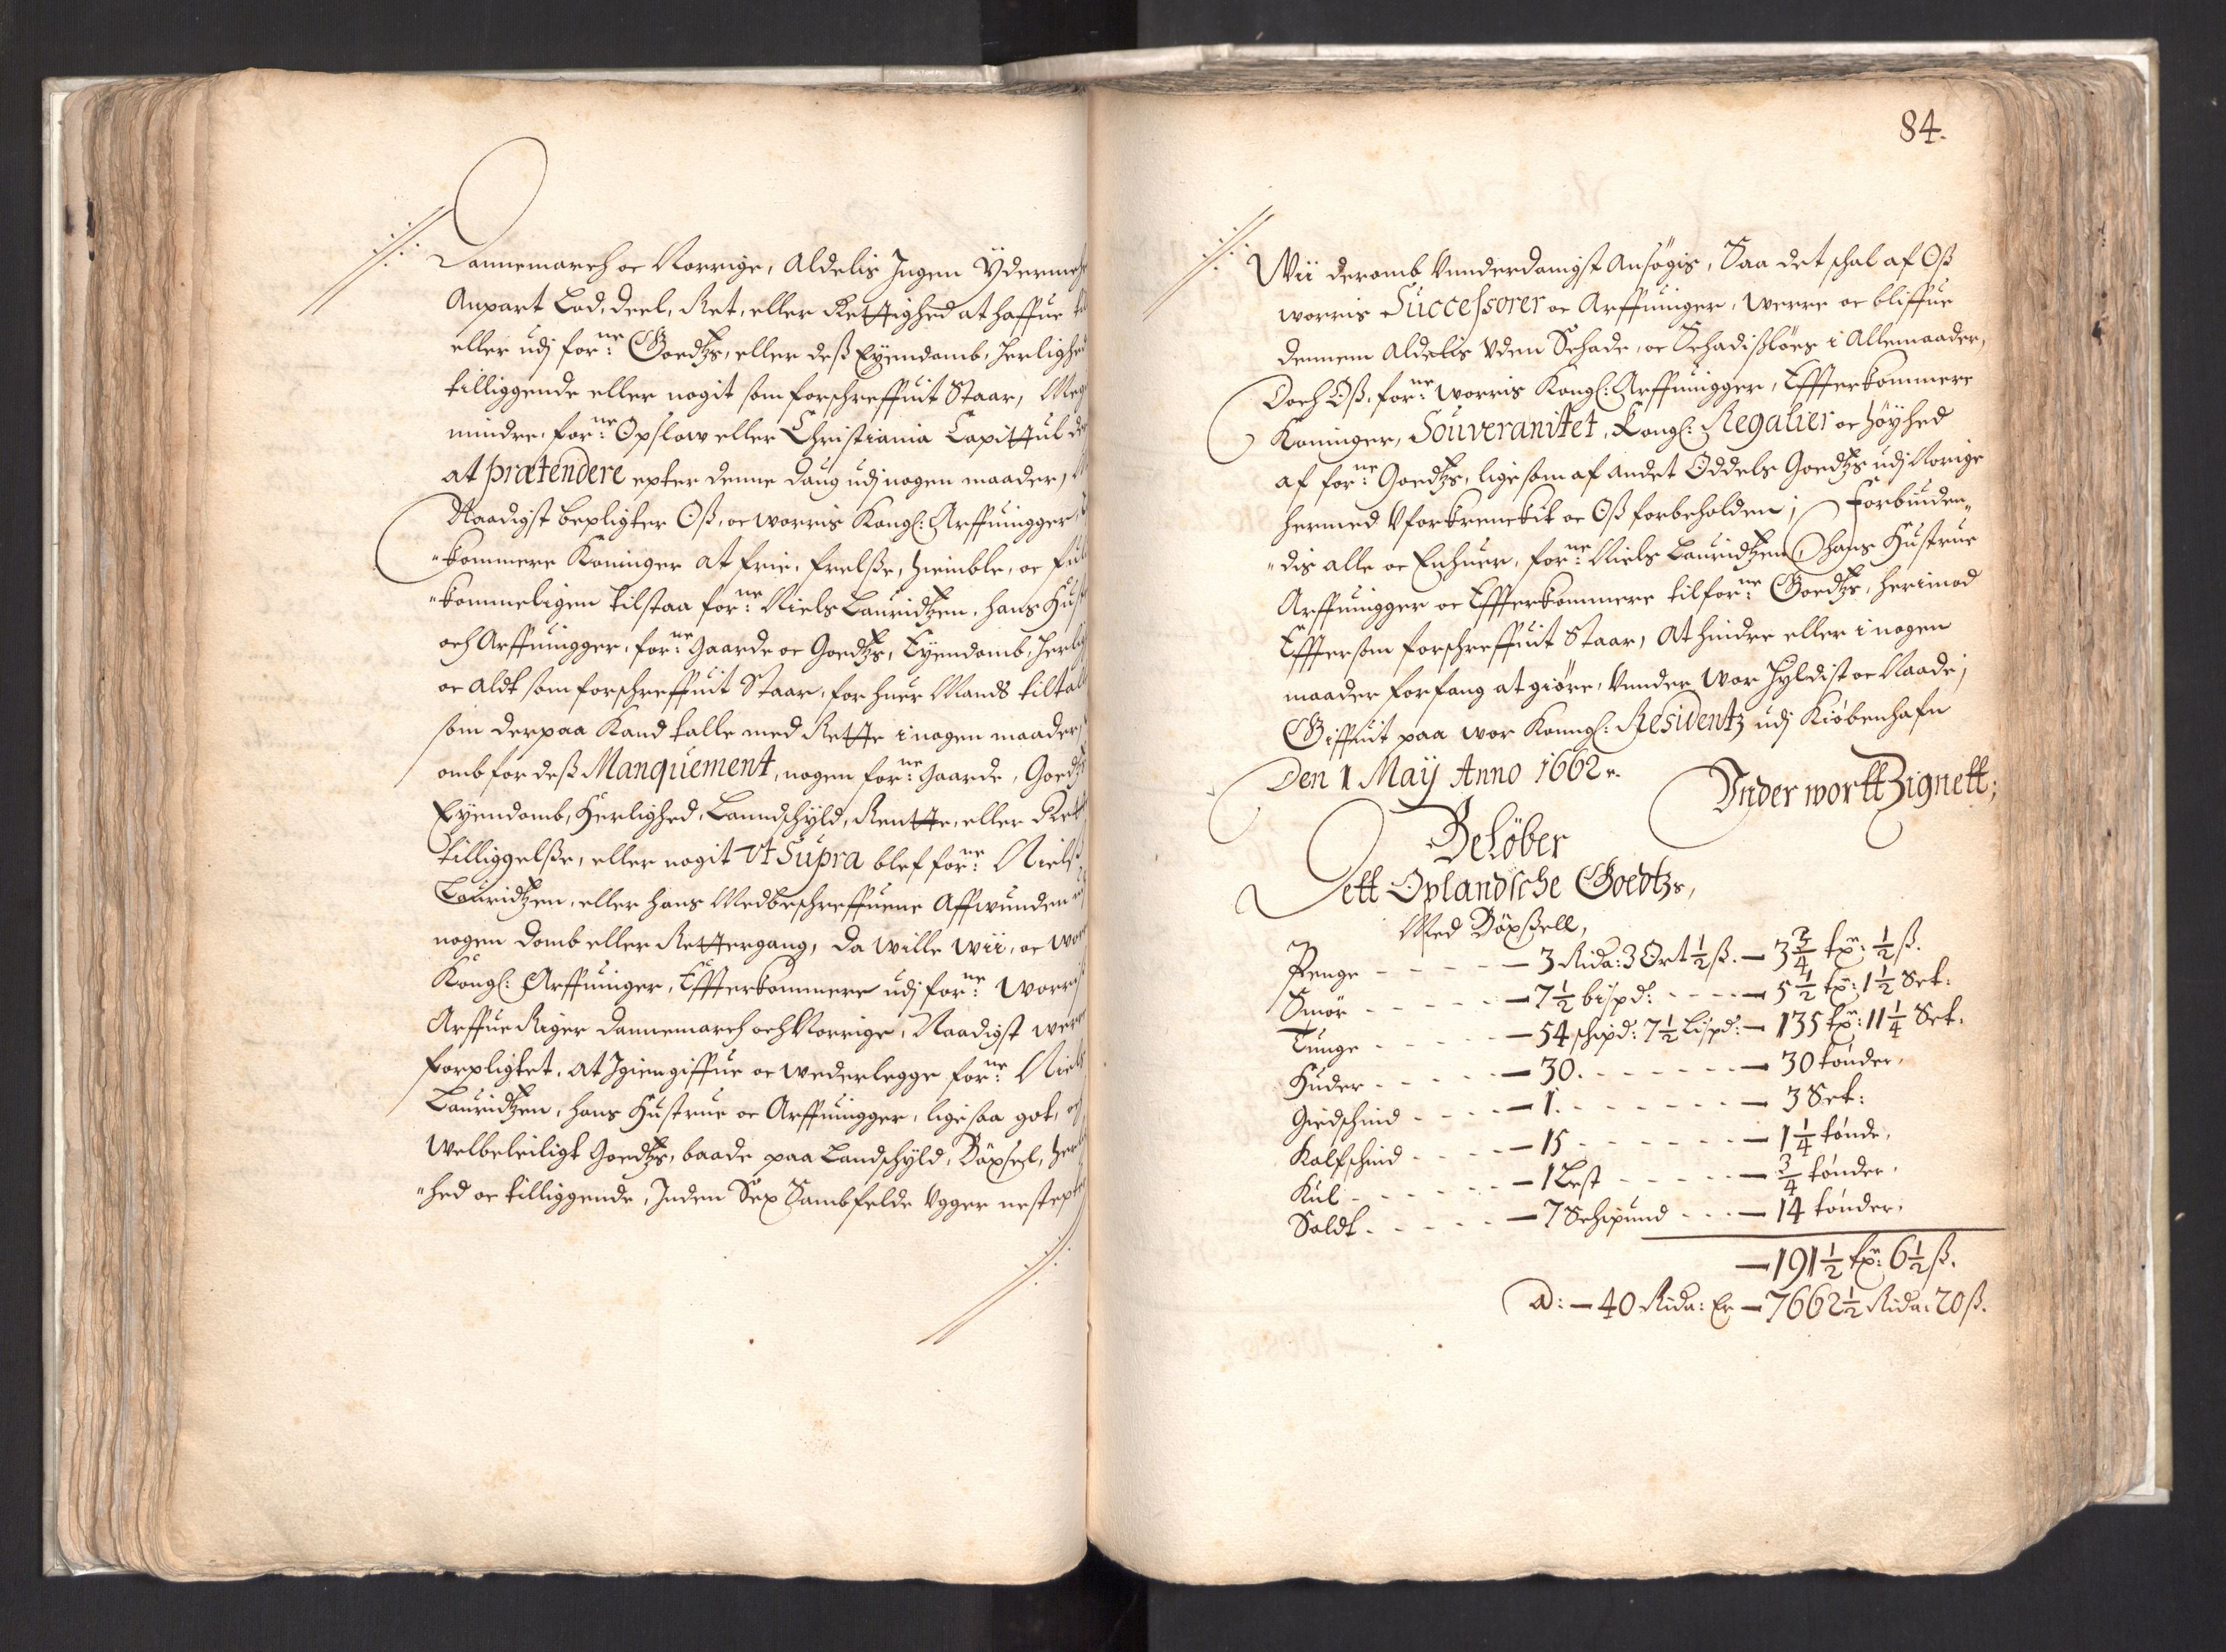 Dannemarch oc Norrige, Aldelis Ingen Ydermehr
Anpart Lod, deel, Ret, eller Rettighed at haffue til
eller udj forne: Goedtzs, eller deß Eyendomb, Herlighed
tilliggende eller nogit som forschreffuit Staar,
mindre forne: Opslow eller Christiania Capittul der
at prætendere epter denne daug udj nogen maader,
Naadigst bepligter Oß, oc worris Kongl: Arffuingger,
"kommere Koninger at frie, frelsße, hiemble, oc ful
"kommeligen tilstaa forne: Niels Lauridtzen, hans Hust
och Arffuingger, forne: gaarde oc Goedtzs, Eyendomb, herlig
oc aldt som forschreffuit Staar, for huer Mands tiltale
som derpaa Kand talle med Rette i nogen maader,
omb for deß Manquement, nogen forne: gaarde, Goedtzs
Eyendomb, Herlighed, Lanndschyld, Rentte, eller Rett
tilliggelsße, eller nogit Vt Supra blef forne: Nielß
Lauridtzen, eller hans Medbeschreffuene Affwunden
nogen domb eller Rettergang, da wille wii, oc wor
Kongl: Arffuinger, Effterkommere udj forne: Worris
Arffue Riger Dannemarch och Norrige, Naadigst were
forpligtet, at Igiengiffue oc wederlegge forne: Niels
Lauridtzen, hans Hustrue oc Arffuingger, lige saa got, och
Welbeleiligt Goedtzs, baade paa Landschyld, Böxsel, herlig
"hed oc tilliggende, Inden Sex Sambfelde Ugger nestepter
84.
Wii deromb Vnnderdanigst Ansögis, Saa det schal af Oß
worris Successorer oc Arffuinger, werre oc bliffue
dennem Aldelis Vden Schade, oc Schadisßlöes i Allemaader,
Doch Oß, forne: worris Kongl: Arffuingger, Effterkommere
Koninger, Souveranitet, Kongl: Regalier oc höyhed
af forne: Goedtzs, ligesom af andet Oddels Goedtzs udj Norige
hermed Vforkrenckit oc Oß forbeholden; Forbiuden"
"dis alle oc Enhuer, forne: Niels Lauridtzen, hans Hustrue
Arffuingger oc Effterkommere til forne: Goedtzs, herimod
Efftersom forschreffuit Staar, At hindre eller i nogen
maader forfang at giöre, Vnnder Wor Hyldist oc Naade;
Giffuit paa wor Konngl: Residentz udj Kiöbenhafn
Den 1 Maij Anno 1662.
Vnder wortt Zignett;
Belöber
Dett Oplandsche Goedtzs,
Med Böxsßell,
Penge - - - - - 3 Rida: 3 Ort ½ ß. - 3¾ tpr: ½ ß.
Smör - - - - - 7½ bispd: - - - - 5½ tpr: 1½ Set:
Tunge - - - - - 54 schpd: 7½ Lispd: - 135 tpr: 11¼ Set:
Huder - - - - - 30. - - - - - - 30 tönder.
Giedschind - - - - 1. - - - - - - 3 Set:
Kalfschind - - - - 15 - - - - - - 1¼ tönde.
Kul - - - - - - 1 Lest - - - - - ¾ tönder.
Saldt - - - - - 7 Schipund - - - 14 tönder.
- 191½ tpr: 6½ ß.
a: - 40 Rida: Er - 7662½ Rida: 20 ß.